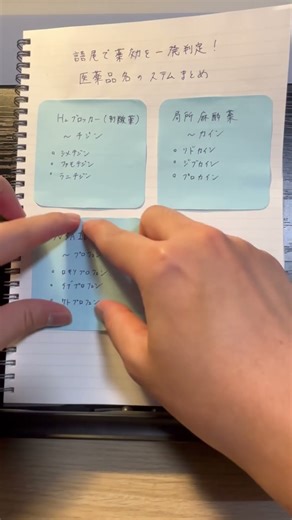 語尾で薬効を一発判定!
医薬品名のステムまとめ
H₂ブロッカー(制酸薬)
~チジン
• シメチジン
• ファモチジン
• ラニチジン
局所麻酔薬
~カイン
• リドカイン
• ジブカイン
• プロカイン
~プロフェン
• ロキソプロフェン
• イブプロフェン
• ケトプロフェン